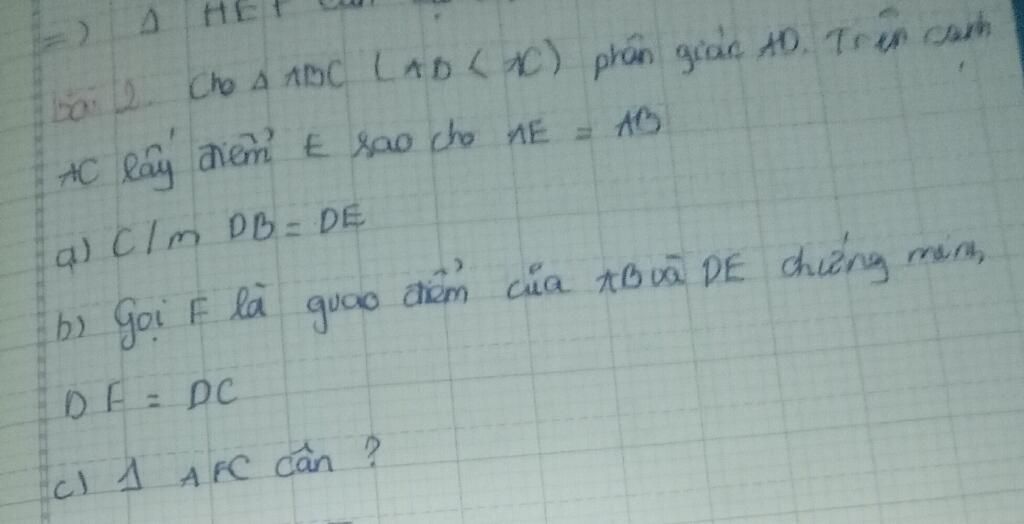 =) Δ HEF cân
bài 2. Cho Δ ABC (AB < AC) phân giác AD. Trên cạnh
AC lấy điểm E sao cho AE = AB
a) C/m DB = DE
b) Gọi F là guao điểm của AB và DE chứng minh
DF = DC
c) Δ AFC cân ?